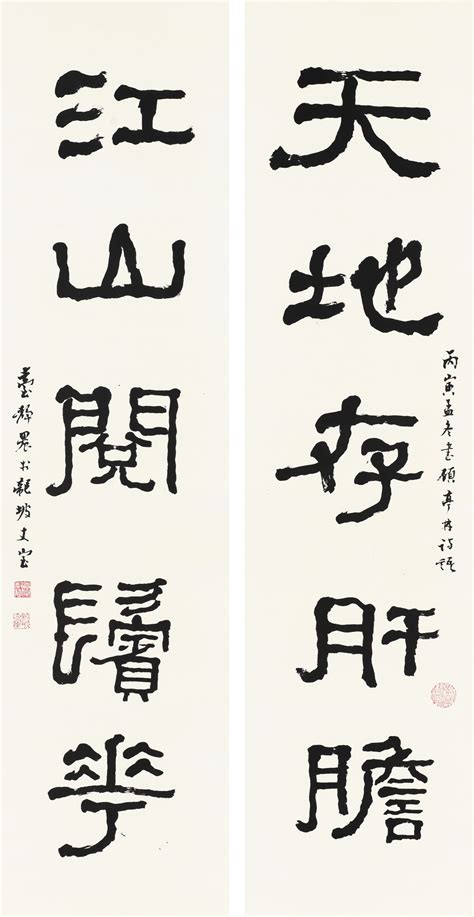 天地存肝膽
丙寅孟冬書顧亭林詩
江山閱鬢華
臺靜農於龍坡丈室